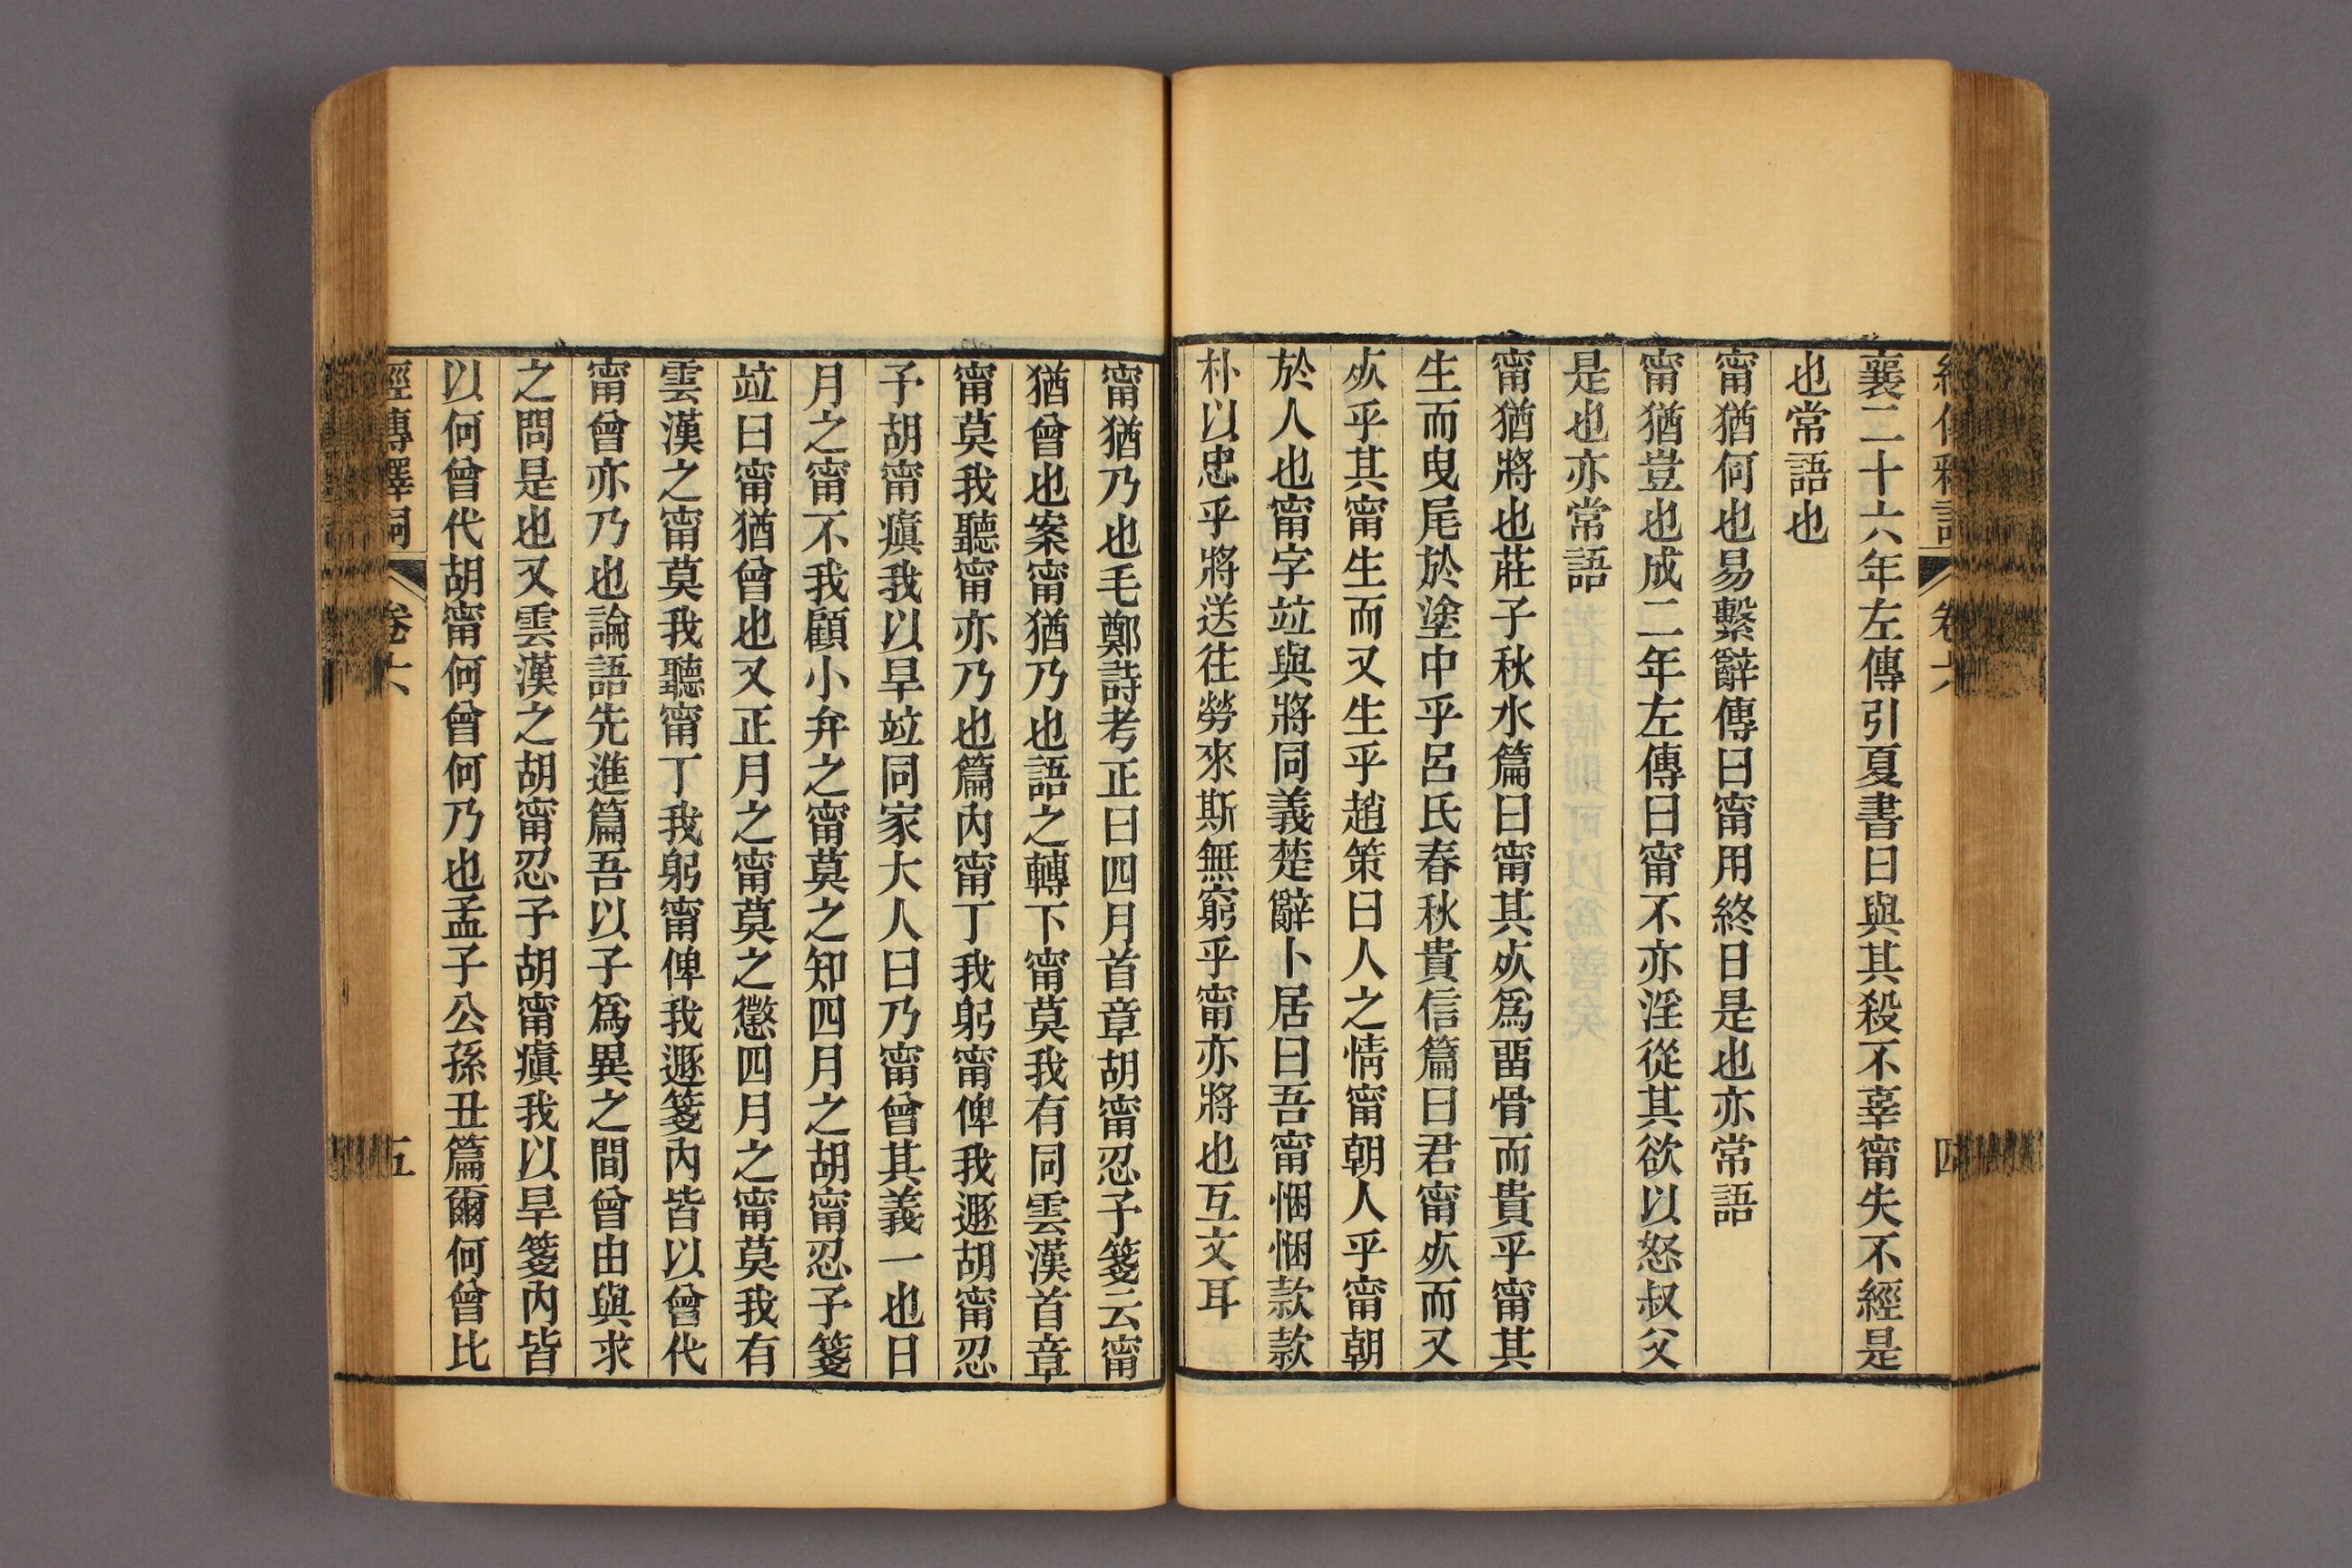 襄二十六年左傳引夏書曰與其殺不辜甯失不經是
也常語也
甯猶何也易繫辭傳曰甯用終日是也亦常語
甯猶豈也成二年左傳曰甯不亦淫從其欲以怒叔父
是也亦常語
甯猶將也莊子秋水篇曰甯其𣦸爲畱骨而貴乎甯其
生而曳尾於塗中乎呂氏春秋貴信篇曰君甯𣦸而又
𣦸乎其甯生而又生乎趙策曰人之情甯朝人乎甯朝
於人也甯字竝與將同義楚辭卜居曰吾甯悃悃款款
朴以忠乎將送往勞來斯無窮乎甯亦將也互文耳
甯猶乃也毛鄭詩考正曰四月首章胡甯忍予箋云甯
猶曾也案甯猶乃也語之轉下甯莫我有同雲漢首章
甯莫我聽甯亦乃也篇內甯丁我躬甯俾我遯胡甯忍
予胡甯瘨我以旱竝同家大人曰乃甯曾其義一也日
月之甯不我顧小弁之甯莫之知四月之胡甯忍予箋
竝曰甯猶曾也又正月之甯莫之懲四月之甯莫我有
雲漢之甯莫我聽甯丁我躬甯俾我遯箋內皆以曾代
甯曾亦乃也論語先進篇吾以子爲異之問曾由與求
之問是也又雲漢之胡甯忍予胡甯瘨我以旱箋內皆
以何曾代胡甯何曾何乃也孟子公孫丑篇爾何曾比
經傳釋詞 卷六 五